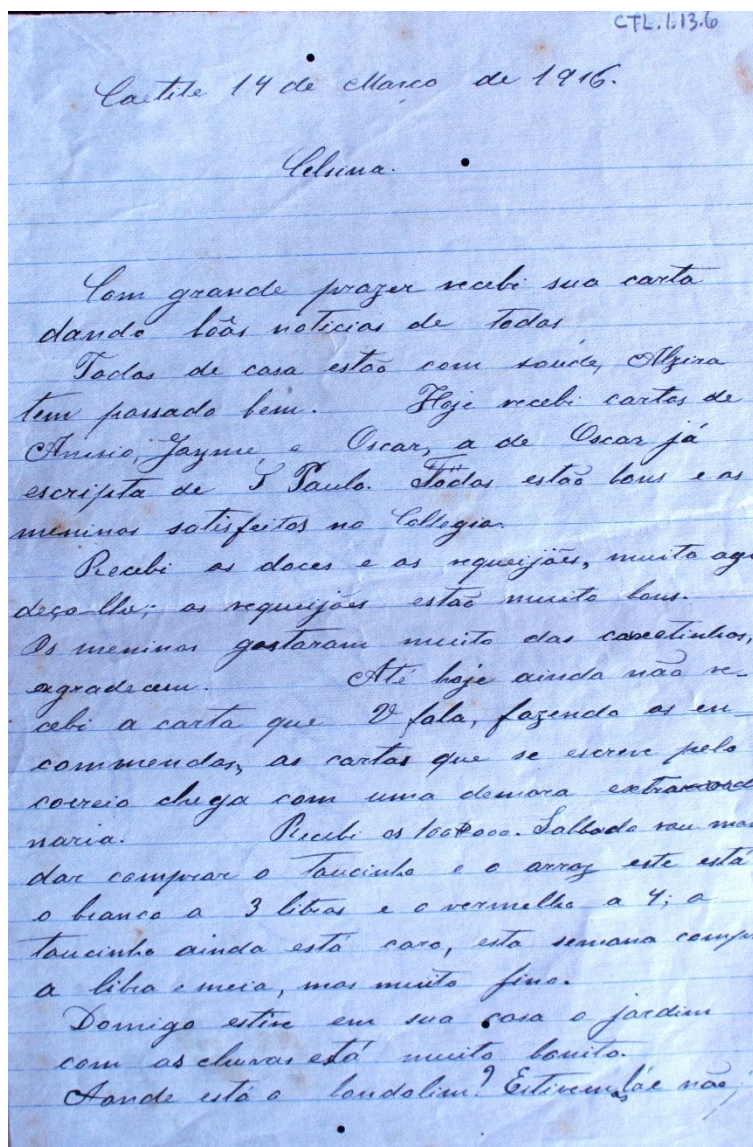 CTL.1.13.6
Caetite 14 de Março de 1916.
Celsina.
Com grande prazer recebi sua carta
dando bôas noticias de todos
Todos de casa estão com saúde, Alzira
tem passado bem. Hoje recebi cartas de
Anisio, Jayme, e Oscar, a de Oscar já
escripta de S Paulo. Todos estão bons e os
meninos satisfeitos no Collegio.
Recebi os doces e os requeijões, muito agr
deço-lhe; os requeijões estão muito bons.
Os meninos gostaram muito das caxetinhas,
agradecem. Até hoje ainda não re-
cebi a carta que V fala, fazendo as en-
commendas, as cartas que se escreve pelo
correio chega com uma demora extraord
naria. Recebi os 100$000. Sabbado vou man
dar comprar o toucinho e o arroz este está
o branco a 3 libras e o vermelho a 4; o
toucinho ainda está caro, esta semana compr
a libra e meia, mas muito fino.
Domigo estive em sua casa o jardim
com as chuvas está muito bonito.
Aonde está o bandolim? Estivemos lá e não